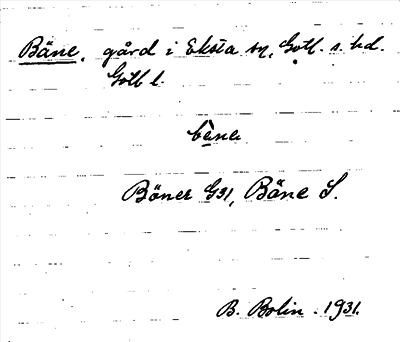 Bäne, gård i Eksta sn, Gotl. s. hd.
Gotl l.
bena
Böner G31, Bäne S.
B. Bolin. 1931.